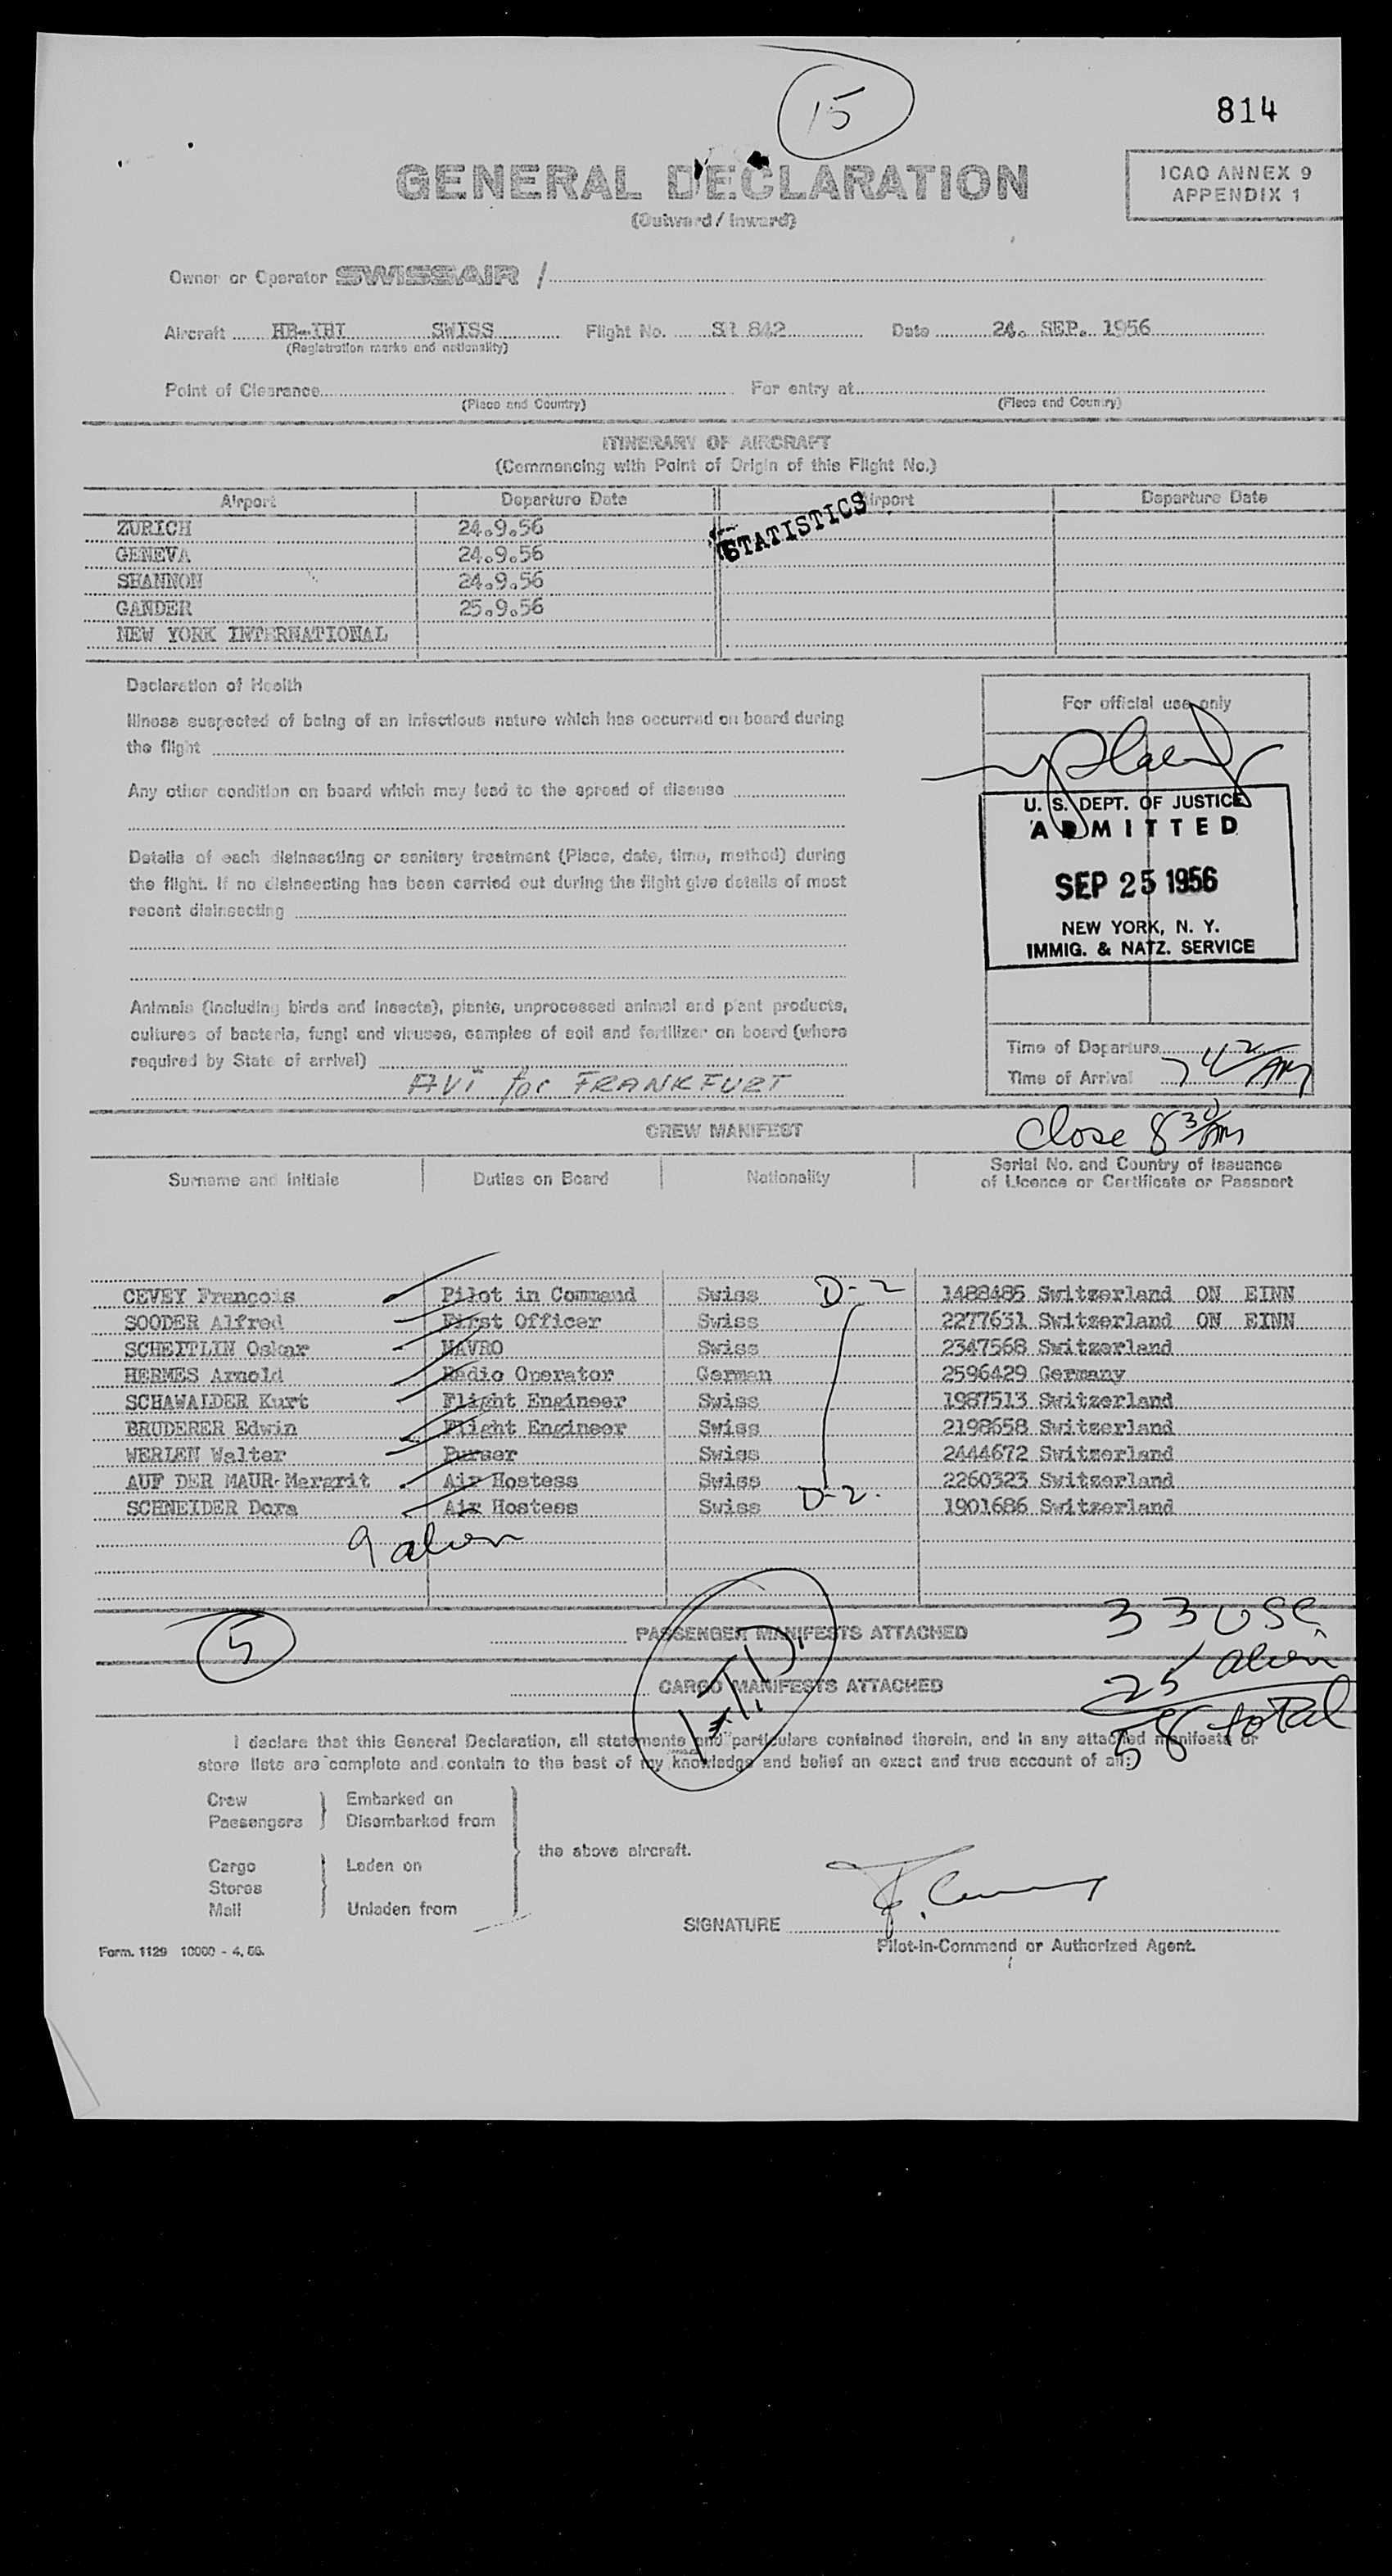 15
814
GENERAL DECLARATION
(Outward / Inward)
ICAO ANNEX 9
APPENDIX 1
Owner or Operator SWISSAIR /
Aircraft HB-IBI SWISS Flight No. SR 842 Date 24. SEP. 1956
(Registration marks and nationality)
Point of Clearance For entry at
(Place and Country) (Place and Country)
ITINERARY OF AIRCRAFT
(Commencing with Point of Origin of this Flight No.)
Airport Departure Date Airport Departure Date
STATISTICS
ZURICH 24.9.56
GENEVA 24.9.56
SHANNON 24.9.56
GANDER 25.9.56
NEW YORK INTERNATIONAL
Declaration of Health
Illness suspected of being of an infectious nature which has occurred on board during
the flight
Any other condition on board which may lead to the spread of disease
Details of each disinsecting or sanitary treatment (Place, date, time, method) during
the flight. If no disinsecting has been carried out during the flight give details of most
recent disinsecting
Animals (including birds and insects), plants, unprocessed animal and plant products,
cultures of bacteria, fungi and viruses, samples of soil and fertilizer on board (where
required by State of arrival)
AVI for FRANKFURT
For official use only
U. S. DEPT. OF JUSTICE
ADMITTED
SEP 25 1956
NEW YORK, N. Y.
IMMIG. & NATZ. SERVICE
Time of Departure
Time of Arrival 7 42 AM
Close 8 30 AM
CREW MANIFEST
Surname and Initials Duties on Board Nationality Serial No. and Country of Issuance
of Licence or Certificate or Passport
CEVEY François Pilot in Command Swiss D-2 1488485 Switzerland ON EINN
SOODER Alfred First Officer Swiss 2277631 Switzerland ON EINN
SCHEITLIN Oskar NAVRO Swiss 2347568 Switzerland
HERMES Arnold Radio Operator German 2596429 Germany
SCHAWALDER Kurt Flight Engineer Swiss 1987513 Switzerland
BRUDERER Edwin Flight Engineer Swiss 2198658 Switzerland
WERLEN Walter Purser Swiss 2444672 Switzerland
AUF DER MAUR Margrit Air Hostess Swiss 2260323 Switzerland
SCHNEIDER Dora Air Hostess Swiss D-2. 1901686 Switzerland
9 alien
5
PASSENGER MANIFESTS ATTACHED
33 USC
25 alien
58 total
CARGO MANIFESTS ATTACHED
I declare that this General Declaration, all statements and particulars contained therein, and in any attached manifests or
store lists are complete and contain to the best of my knowledge and belief an exact and true account of all:
Crew Embarked on
Passengers Disembarked from
the above aircraft.
Cargo Laden on
Stores
Mail Unladen from
SIGNATURE
Pilot-in-Command or Authorized Agent.
Form. 1129 10000 - 4. 56.